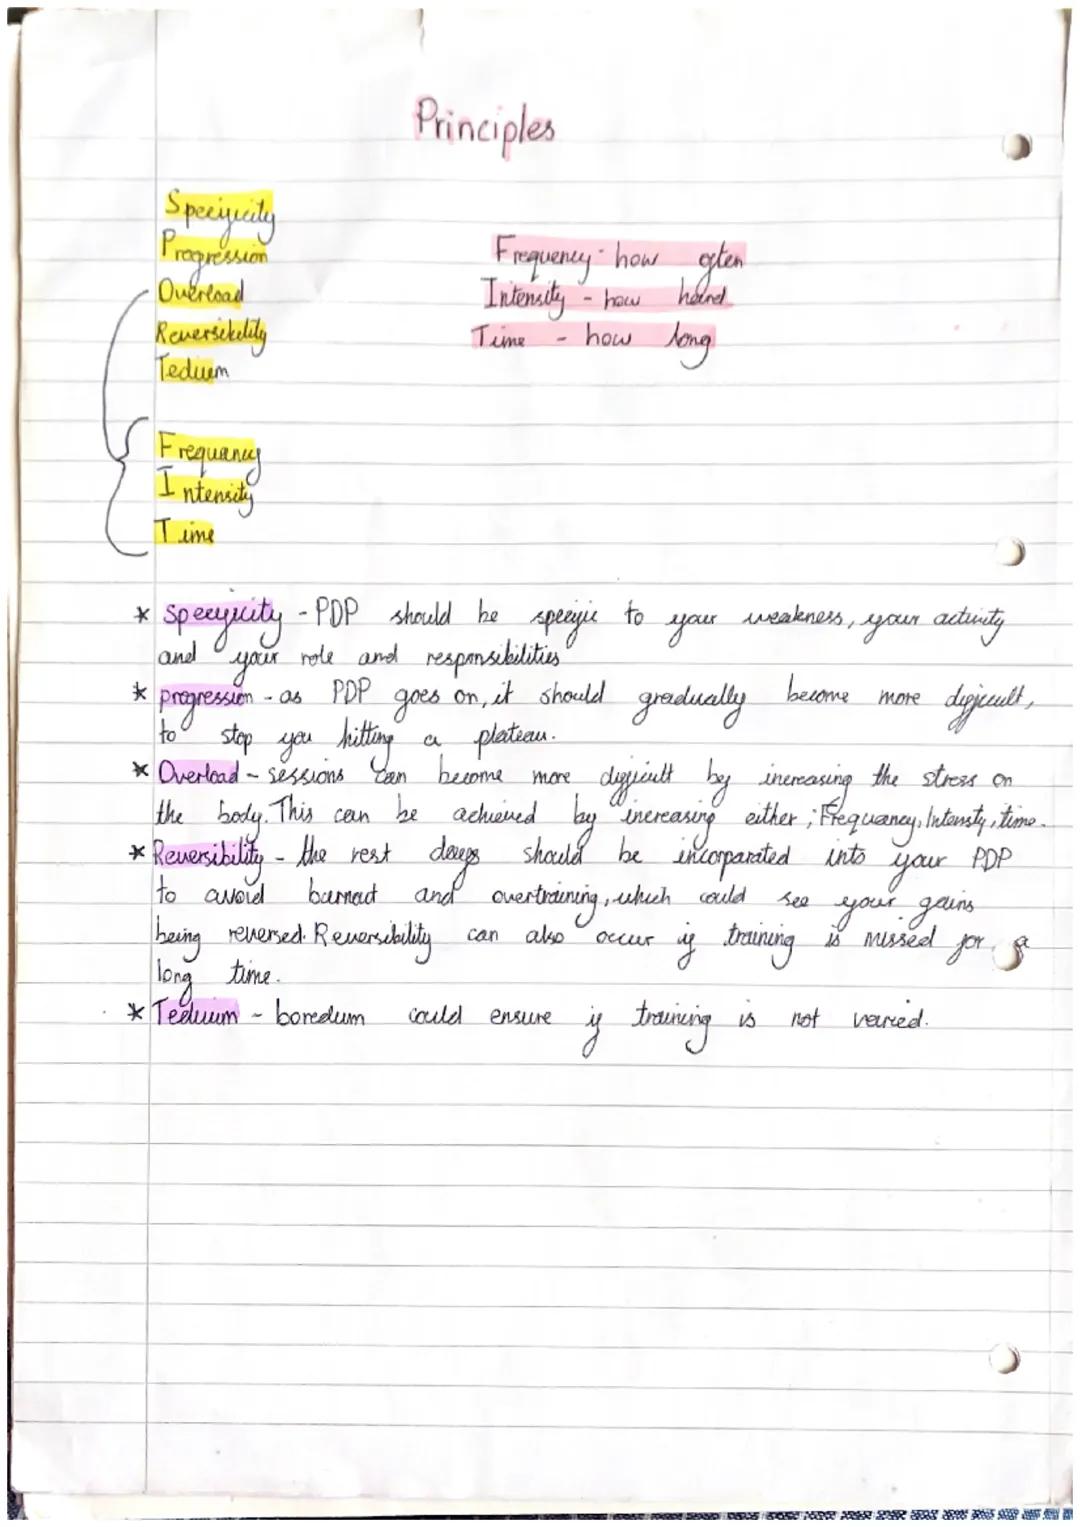 Principles
Specificity
Progression
Overload
Reversibility
Tedium
Frequency - how often
Intensity - how hard
Time - how long
Frequency
Intensity
Time
* Specificity - PDP should be specific to your weakness, your activity
and your role and responsibilities
* progression - as PDP goes on, it should gradually become more difficult,
to stop you hitting a plateau.
* Overload - sessions can become more difficult by increasing the stress on
the body. This can be achieved by increasing either ; Frequency, Intensty, time.
* Reversibility - the rest days should be incorparated into your PDP
to avoid burnout and overtraining, which could see your gains
being reversed. Reversibility can also occur if training is missed for a
long time.
* Tedium - boredum could ensure if training is not varied.